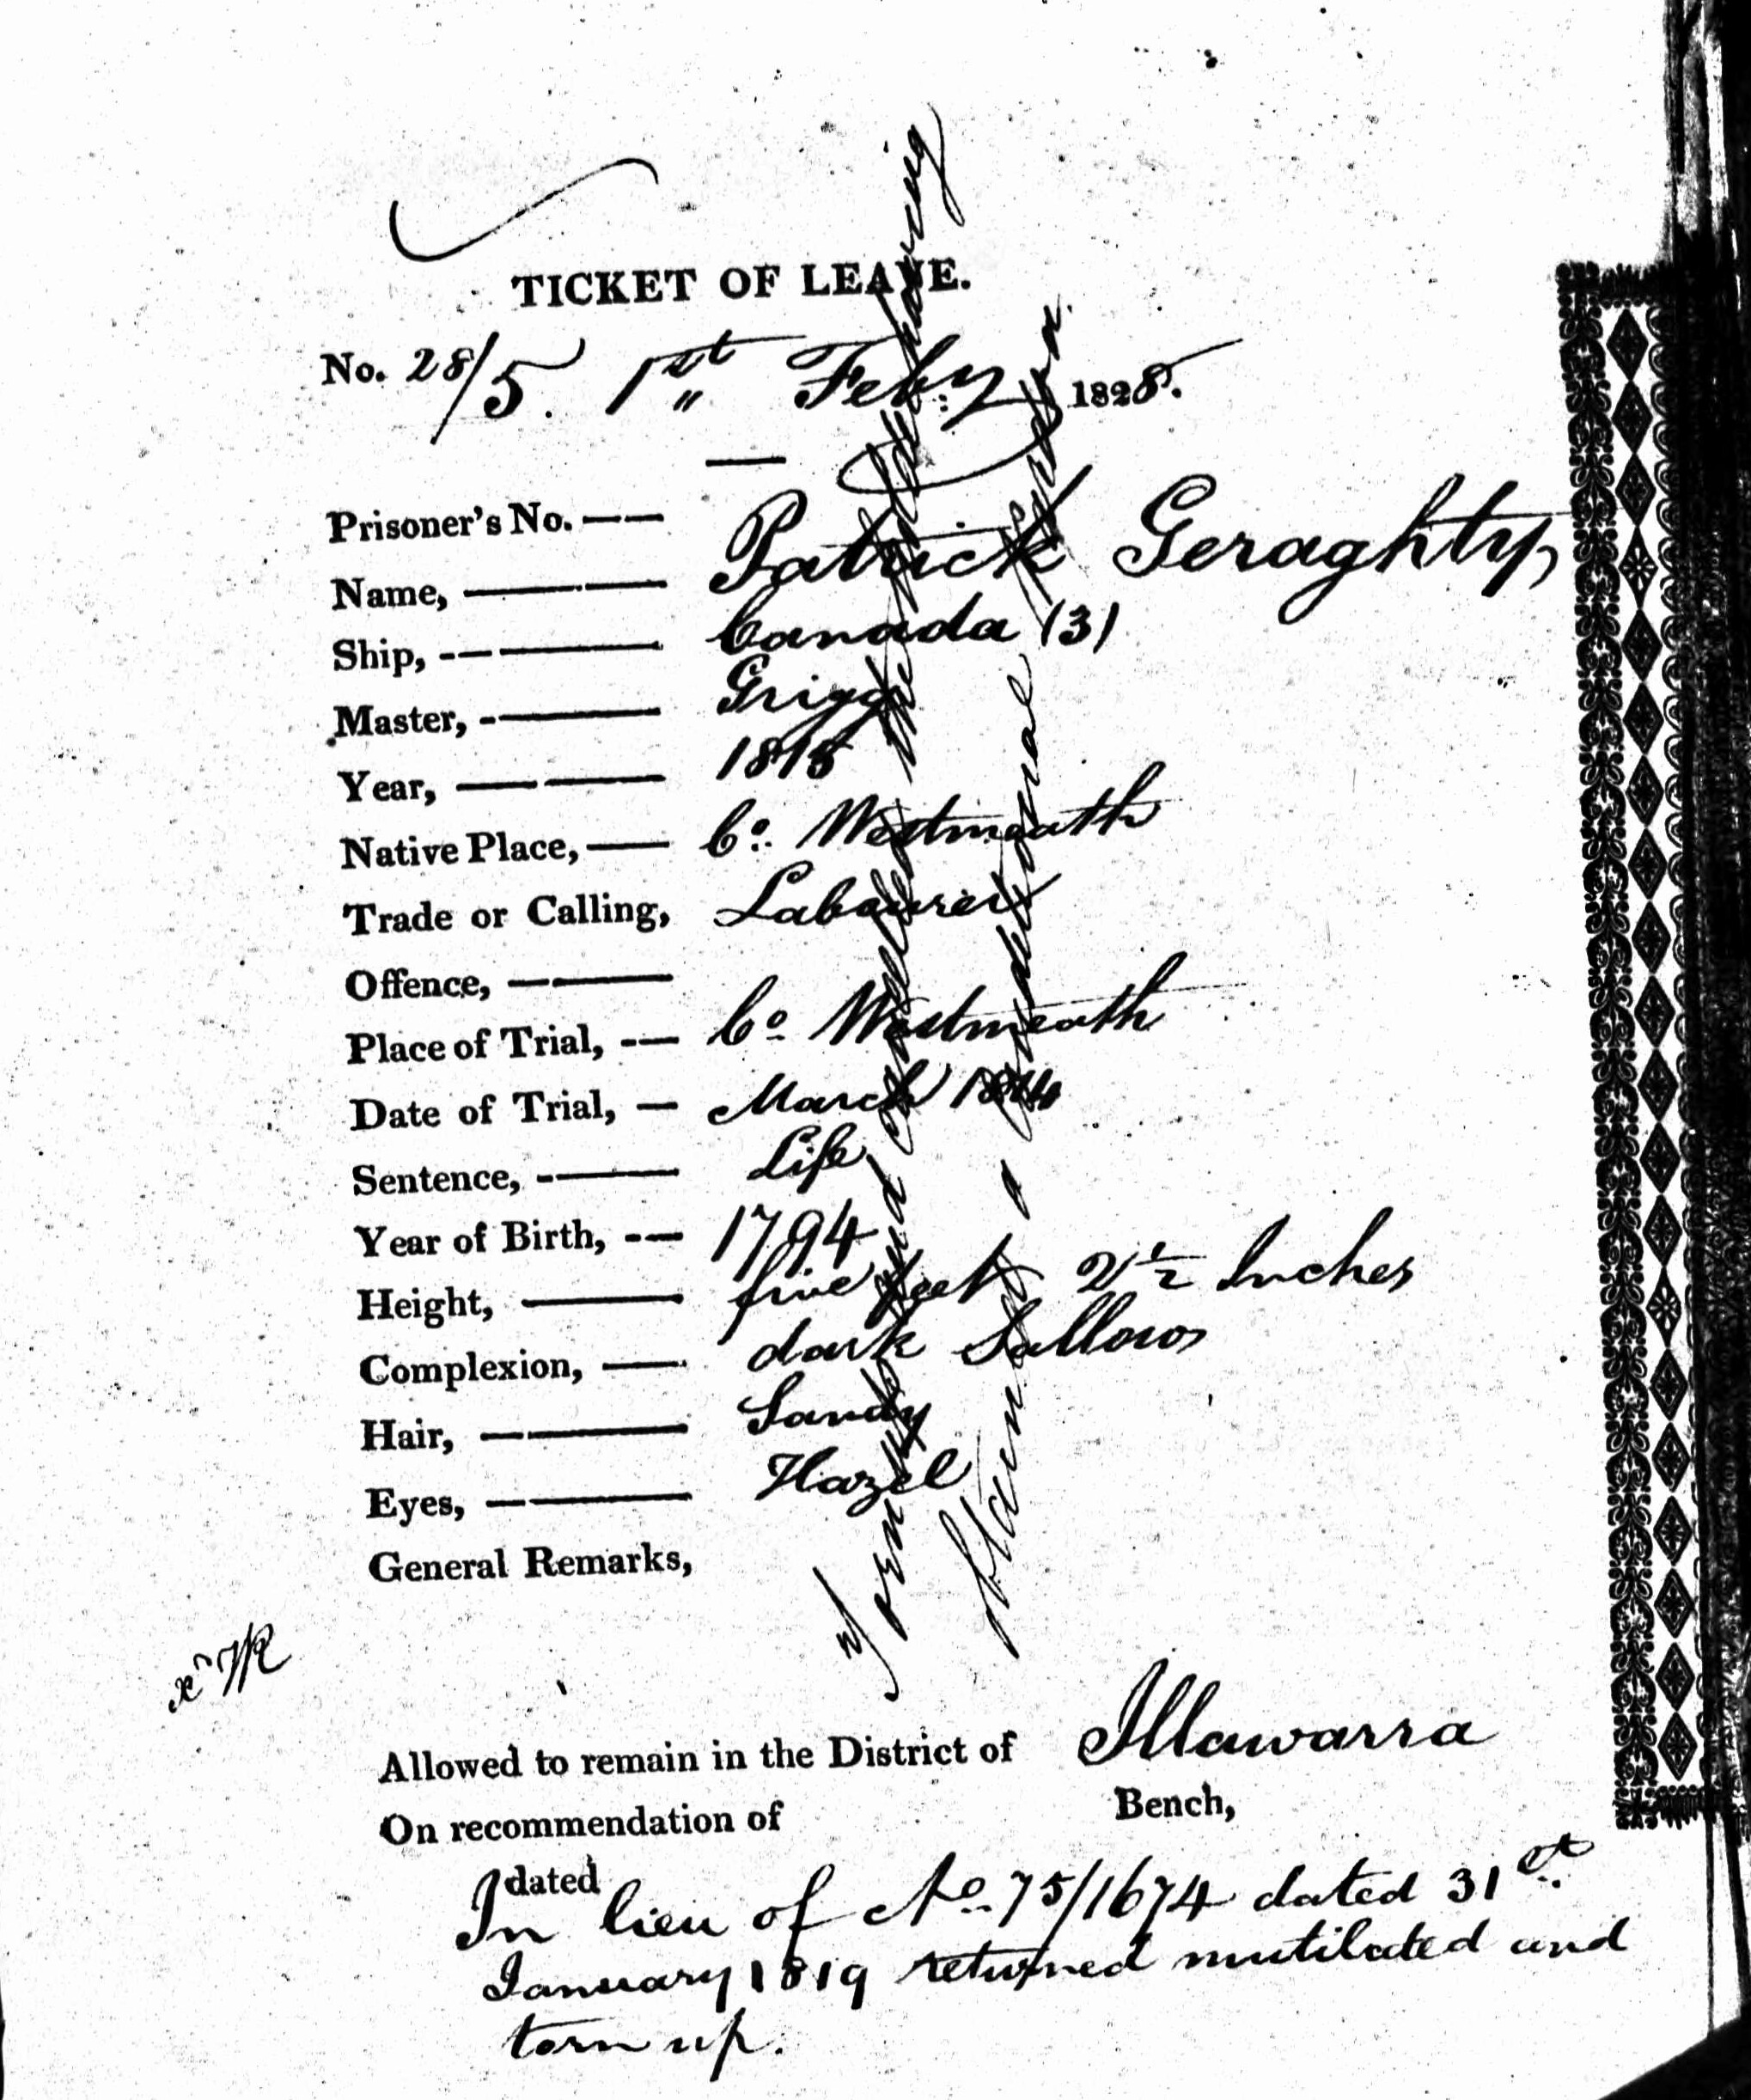 TICKET OF LEAVE.
No. 28/5. 1st Feby 1828.
Prisoner's No.
Name, Patrick Geraghty
Ship, Canada (3)
Master, Grigg
Year, 1815
Native Place, Co. Westmeath
Trade or Calling, Labourer
Offence,
Place of Trial, Co Westmeath
Date of Trial, March 1814
Sentence, Life
Year of Birth, 1794
Height, five feet 2 1/2 Inches
Complexion, dark Sallow
Hair, Sandy
Eyes, Hazel
General Remarks,
Torn up and cancelled the holder having
obtained a Conditional Pardon.
Allowed to remain in the District of Illawarra
On recommendation of Bench,
dated
In lieu of No. 75/1674 dated 31st.
January 1819 returned mutilated and
torn up.